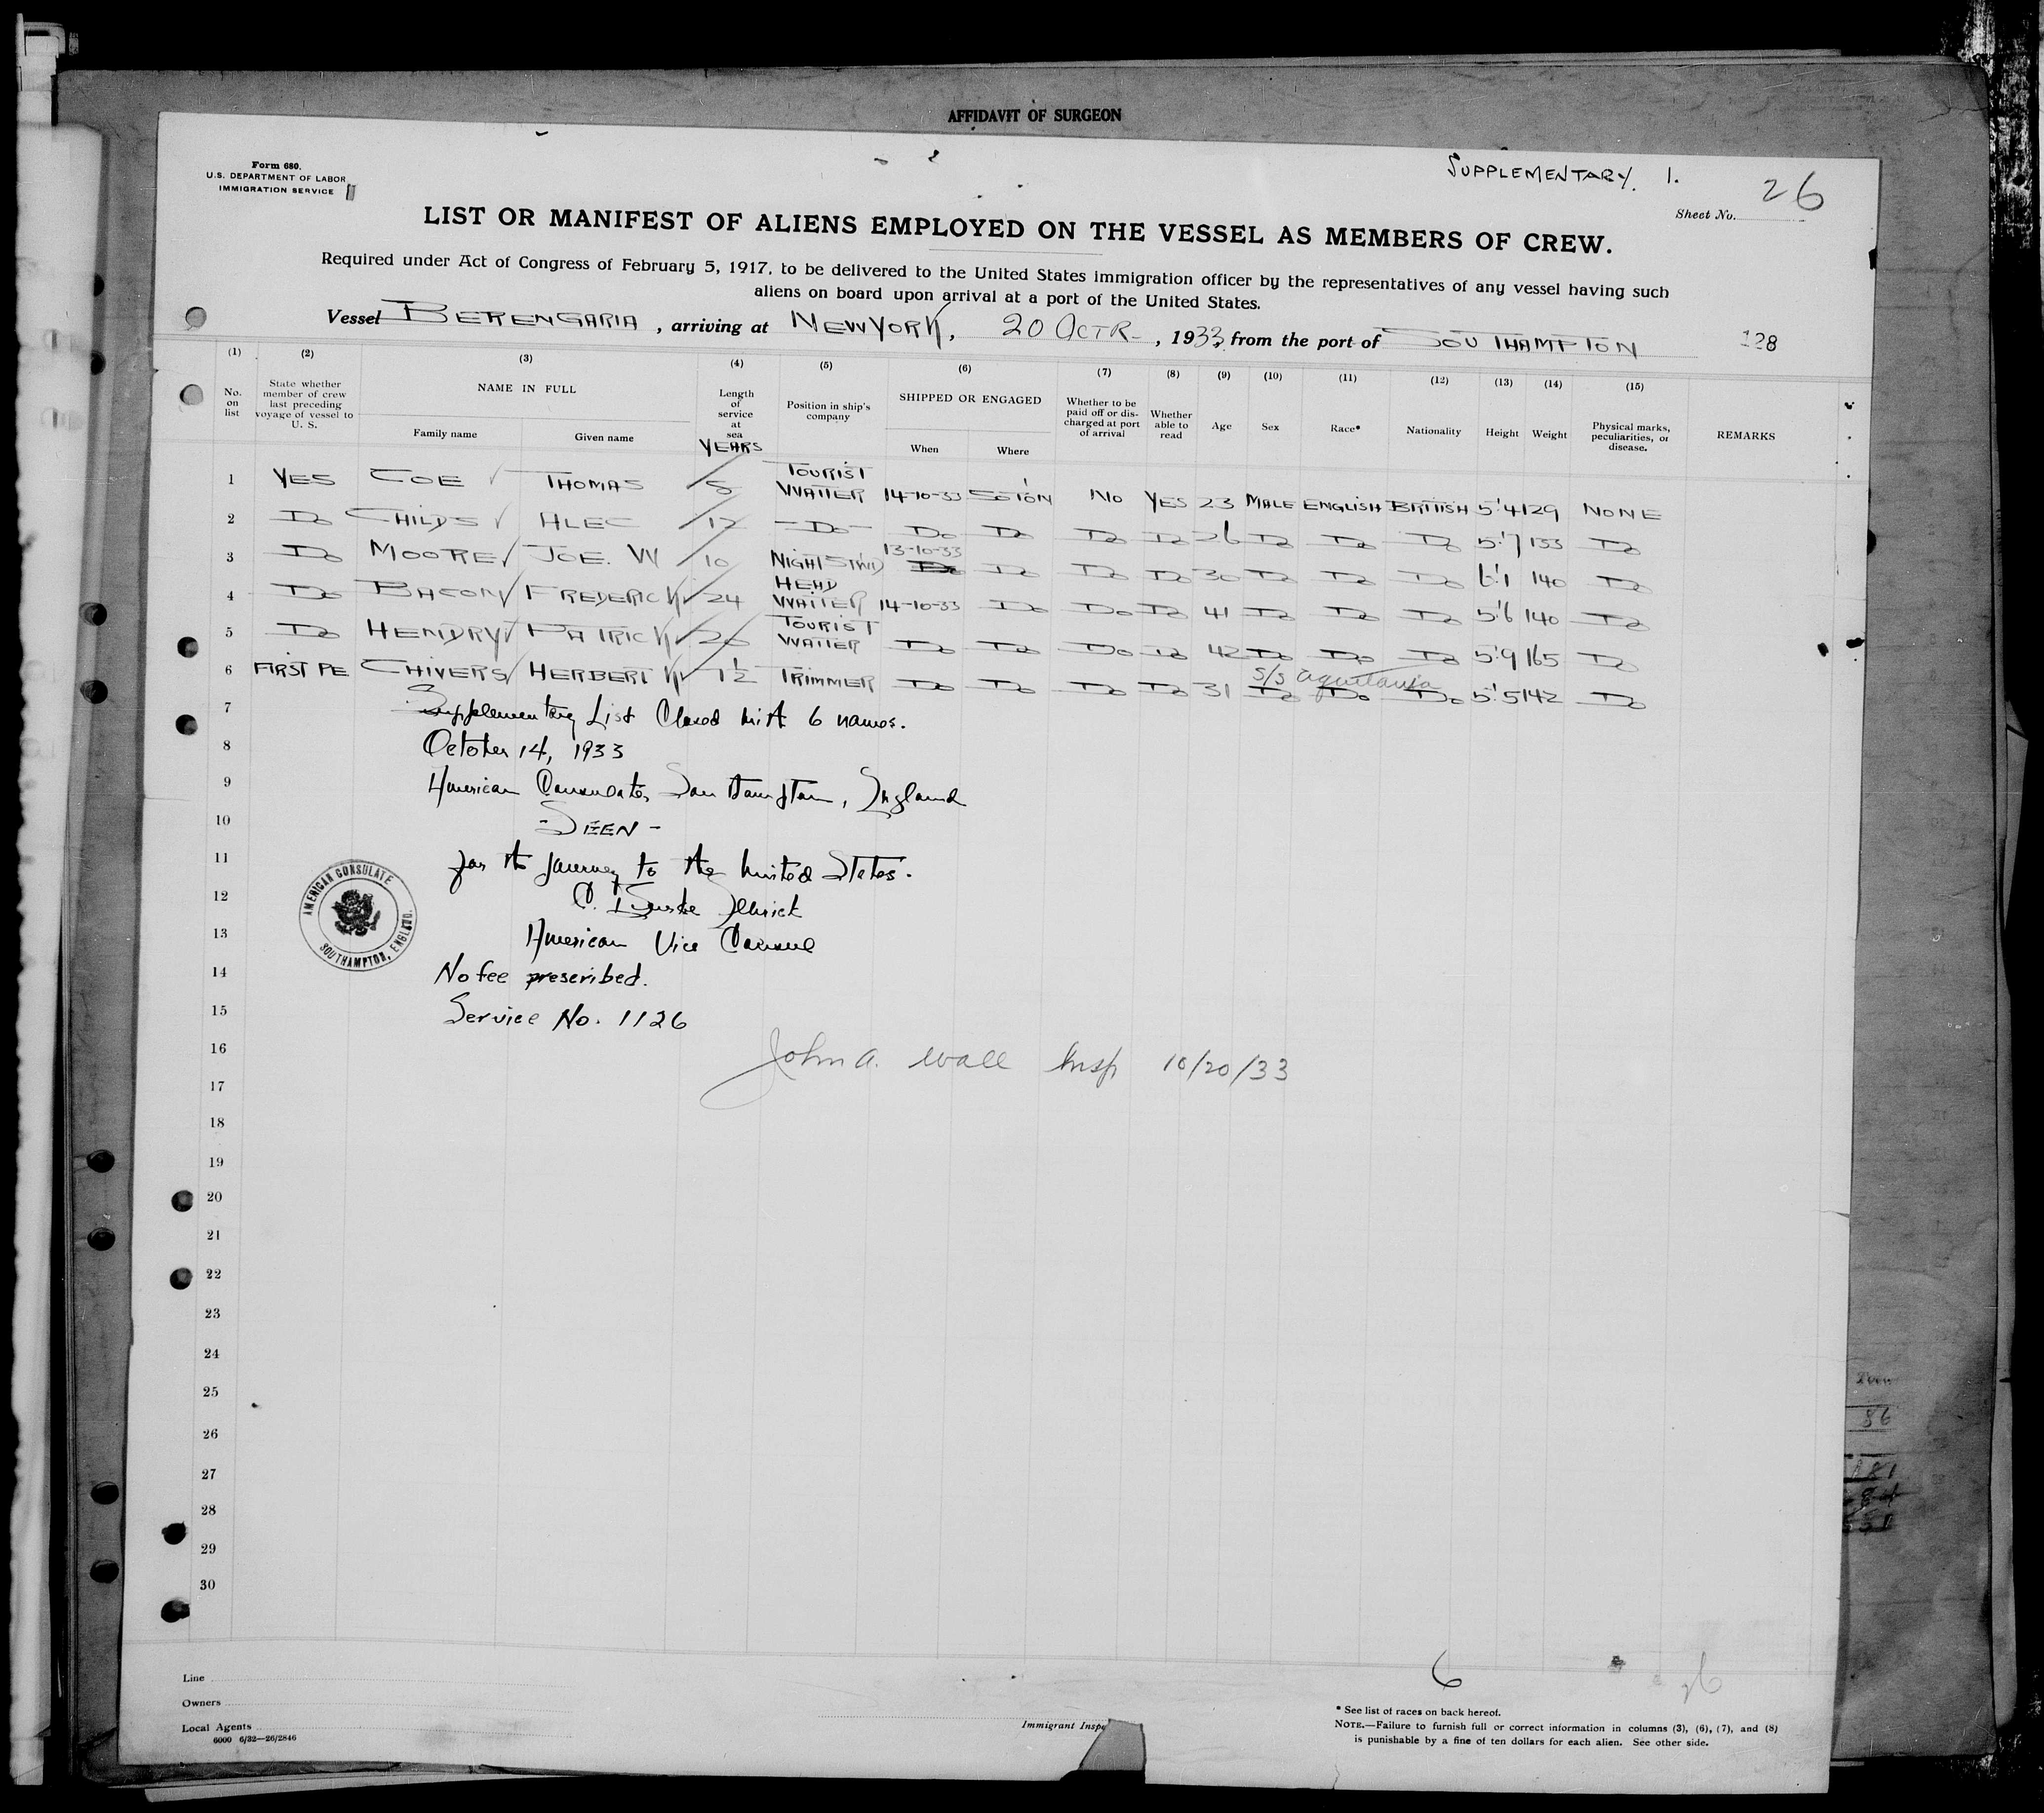 AFFIDAVIT OF SURGEON
Form 680.
U.S. DEPARTMENT OF LABOR
IMMIGRATION SERVICE
SUPPLEMENTARY. 1.
26
Sheet No.
LIST OR MANIFEST OF ALIENS EMPLOYED ON THE VESSEL AS MEMBERS OF CREW.
Required under Act of Congress of February 5, 1917, to be delivered to the United States immigration officer by the representatives of any vessel having such
aliens on board upon arrival at a port of the United States.
Vessel BERENGARIA, arriving at NEWYORK, 20 OCTR, 1933, from the port of SOUTHAMPTON
128
(1) (2) (3) (4) (5) (6) (7) (8) (9) (10) (11) (12) (13) (14) (15)
No. on list State whether member of crew last preceding voyage of vessel to U. S. NAME IN FULL Family name Given name Length of service at sea YEARS Position in ship's company SHIPPED OR ENGAGED When Where Whether to be paid off or discharged at port of arrival Whether able to read Age Sex Race* Nationality Height Weight Physical marks, peculiarities, or disease. REMARKS
1 YES COE THOMAS 5 TOURIST WAITER 14-10-33 SOTON NO YES 23 MALE ENGLISH BRITISH 5'4 129 NONE
2 Do CHILDS ALEC 12 -Do- Do Do Do Do 26 Do Do Do 5'7 133 Do
3 Do MOORE JOE. W 10 NIGHT STWD 13-10-33 Do Do Do 30 Do Do Do 6'1 140 Do
4 Do BACON FREDERICK 24 HEAD WAITER 14-10-33 Do Do Do 41 Do Do Do 5'6 140 Do
5 Do HENDRY PATRICK 26 TOURIST WAITER Do Do Do Do 42 Do Do Do 5'9 165 Do
S/S Aquitania
6 FIRST PE CHIVERS HERBERT 1½ TRIMMER Do Do Do Do 31 Do Do Do 5'5 142 Do
7 Supplementary List Closed with 6 names.
8 October 14, 1933
9 American Consulate, Southampton, England
10 -SEEN-
11 for the journey to the United States.
12 C.
13 American Vice Consul
AMERICAN CONSULATE
SOUTHAMPTON, ENGLAND.
14 No fee prescribed.
15 Service No. 1126
16 John A. Wall Insp 10/20/33
17
18
19
20
21
22
23
24
25
26
27
28
29
30
6
26
Line
Owners
Local Agents
6000 6/32—26/2846
Immigrant Inspe
* See list of races on back hereof.
NOTE.—Failure to furnish full or correct information in columns (3), (6), (7), and (8)
is punishable by a fine of ten dollars for each alien. See other side.
86